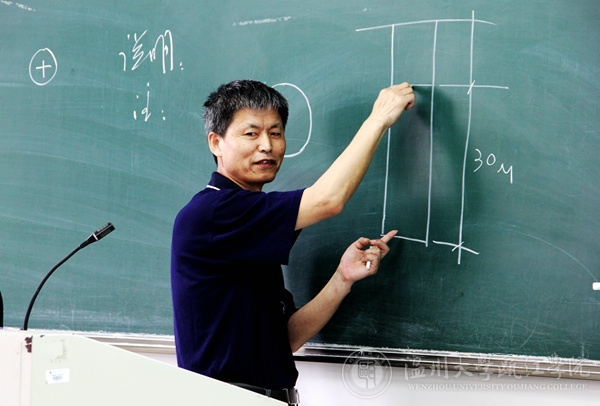 说明:
30M
温州大学瓯江学院
WENZHOU UNIVERSITY OUJIANG COLLEGE